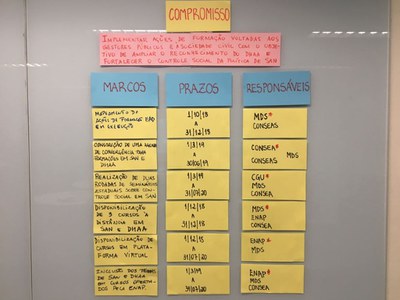 COMPROMISSO
IMPLEMENTAR AÇÕES DE FORMAÇÃO VOLTADAS AOS
GESTORES PÚBLICOS E A SOCIEDADE CIVIL COM O OBJE-
TIVO DE AMPLIAR O RECONHECIMENTO DO DHAA E
FORTALECER O CONTROLE SOCIAL DA POLÍTICA DE SAN
MARCOS
PRAZOS
RESPONSÁVEIS
MAPEAMENTO DE
AÇÕES DE FORMAÇÃO
1/10/18
A
31/12/18
MDS*
CONSEAS
CONSTRUÇÃO DE UMA AGENDA
DE CONVERGÊNCIA PARA
FORMAÇÕES EM SAN E
DHAA
A
30/06/19
CONSEA*
CONSEAS MDS
REALIZAÇÃO DE DUAS
RODADAS DE SEMINÁRIOS
ESTADUAIS SOBRE CON-
TROLE SOCIAL EM SAN
A
31/07/20
CGU*
MDS
CONSEA
DISPONIBILIZAÇÃO
DE 3 CURSOS A
DISTÂNCIA EM
SAN E DHAA
1/12/18
A
31/12/18
MDS*
ENAP
CONSEA
DISPONIBILIZAÇÃO
DE CURSOS EM PLATA-
FORMA VIRTUAL
1/12/18
A
31/07/20
ENAP*
MDS
INCLUSÃO DOS TEMAS
DE SAN E DHAA
EM CURSOS OFERTA-
DOS PELA ENAP
A
31/07/20
ENAP*
MDS
CONSEA